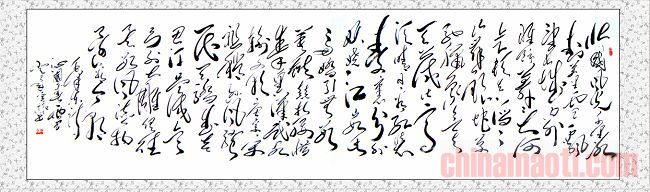 北国风光千里冰
封万里雪飘
望长城内外
惟余莽莽大河
上下顿失滔滔
山舞银蛇原
驰蜡象欲与
天公试比高
须晴日看红装
素裹分外
妖娆江山如此
多娇引无数
英雄竞折腰惜
秦皇汉武略
输文采唐宗宋
祖稍逊风骚一代
天骄成吉
思汗只识弯
弓射大雕俱往
矣数风流人物
还看今朝
沁园春雪
chinamaoti.com